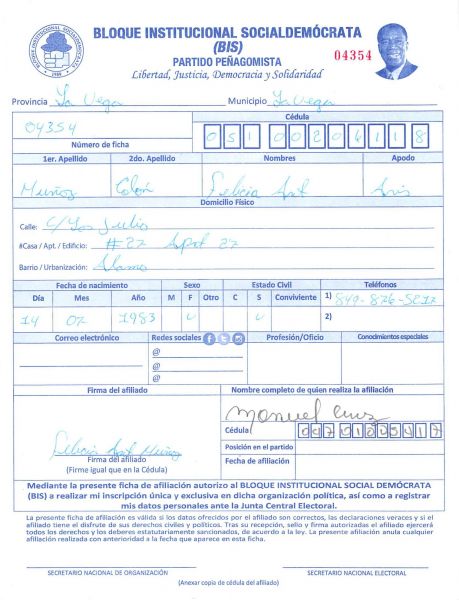 BLOQUE INSTITUCIONAL SOCIALDEMÓCRATA
BLOQUE INSTITUCIONAL SOCIALDEMÓCRATA
(BIS)
PARTIDO PEÑAGOMISTA
04354
Libertad, Justicia, Democracia y Solidaridad
Provincia La Vega Municipio La Vega
04354 Cédula
Número de ficha 051 0020411 8
1er. Apellido 2do. Apellido Nombres Apodo
Muñoz Colón Felicia Ant
Domicilio Físico
Calle: C/
#Casa / Apt. / Edificio: #27 Apat 27
Barrio / Urbanización:
Fecha de nacimiento Sexo Estado Civil Teléfonos
Día Mes Año M F Otro C S Conviviente 1) 849-876-5212
14 07 1983 2)
Correo electrónico Redes sociales Profesión/Oficio Conodmientos especiales
@
@
@
Firma del afiliado Nombre completo de quien realiza la afiliación
Manuel Cruz
Cédula
Felicia Ant Muñoz Posición en el partido
Firma del afiliado Fecha de afiliación
(Firme igual que en la Cédula)
Mediante la presente ficha de afiliación autorizo al BLOQUE INSTITUCIONAL SOCIAL DEMÓCRATA
(BIS) a realizar mi inscripción única y exclusiva en dicha organización política, así como a registrar
mis datos personales ante la Junta Central Electoral.
La presente ficha de afiliación es válida si los datos ofrecidos por el afiliado son correctos, las declaraciones veraces y si el
afiliado tiene el disfrute de sus derechos civiles y políticos. Tras su recepción, sello y firma autorizadas el afiliado ejercerá
todos los derechos y los deberes estatutariamente sancionados, de acuerdo a la ley. La presente afiliación anula cualquier
afiliación realizada con anterioridad a la fecha que aparece en esta ficha.
SECRETARIO NACIONAL DE ORGANIZACIÓN SECRETARIO NACIONAL ELECTORAL
(Anexar copia de cédula del afiliado)